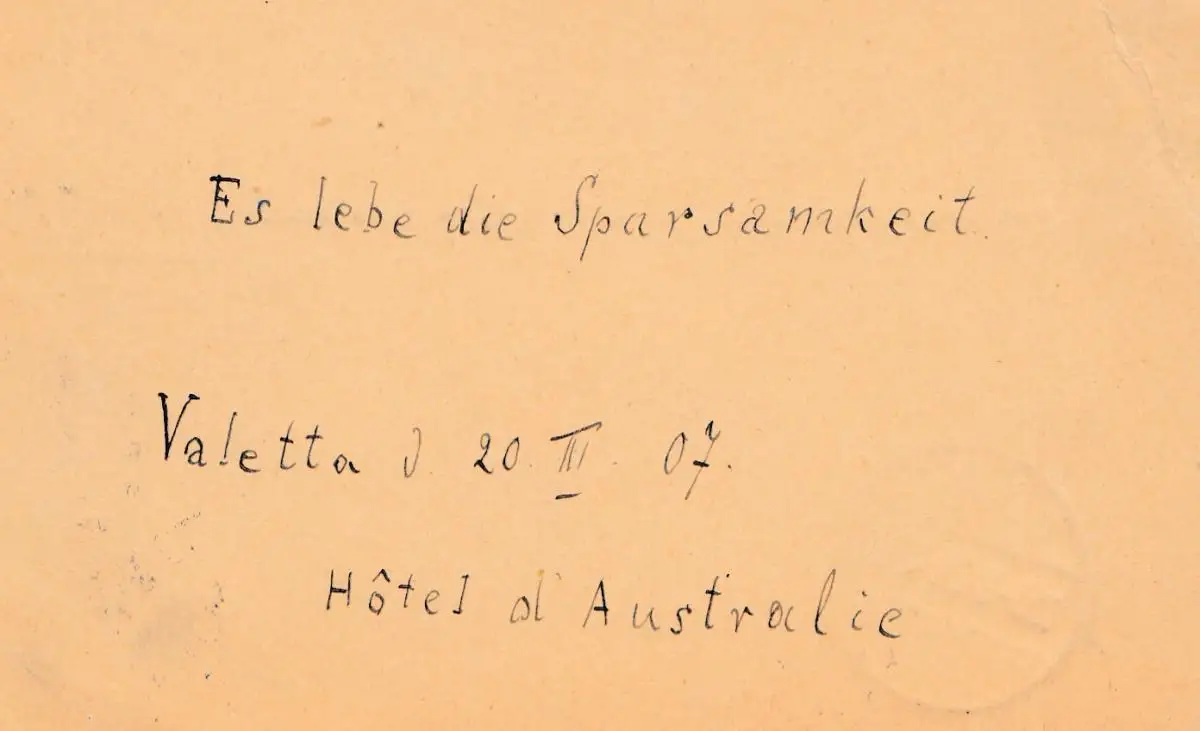 Es lebe die Sparsamkeit.
Valetta d. 20. III. 07.
Hôtel d'Australie